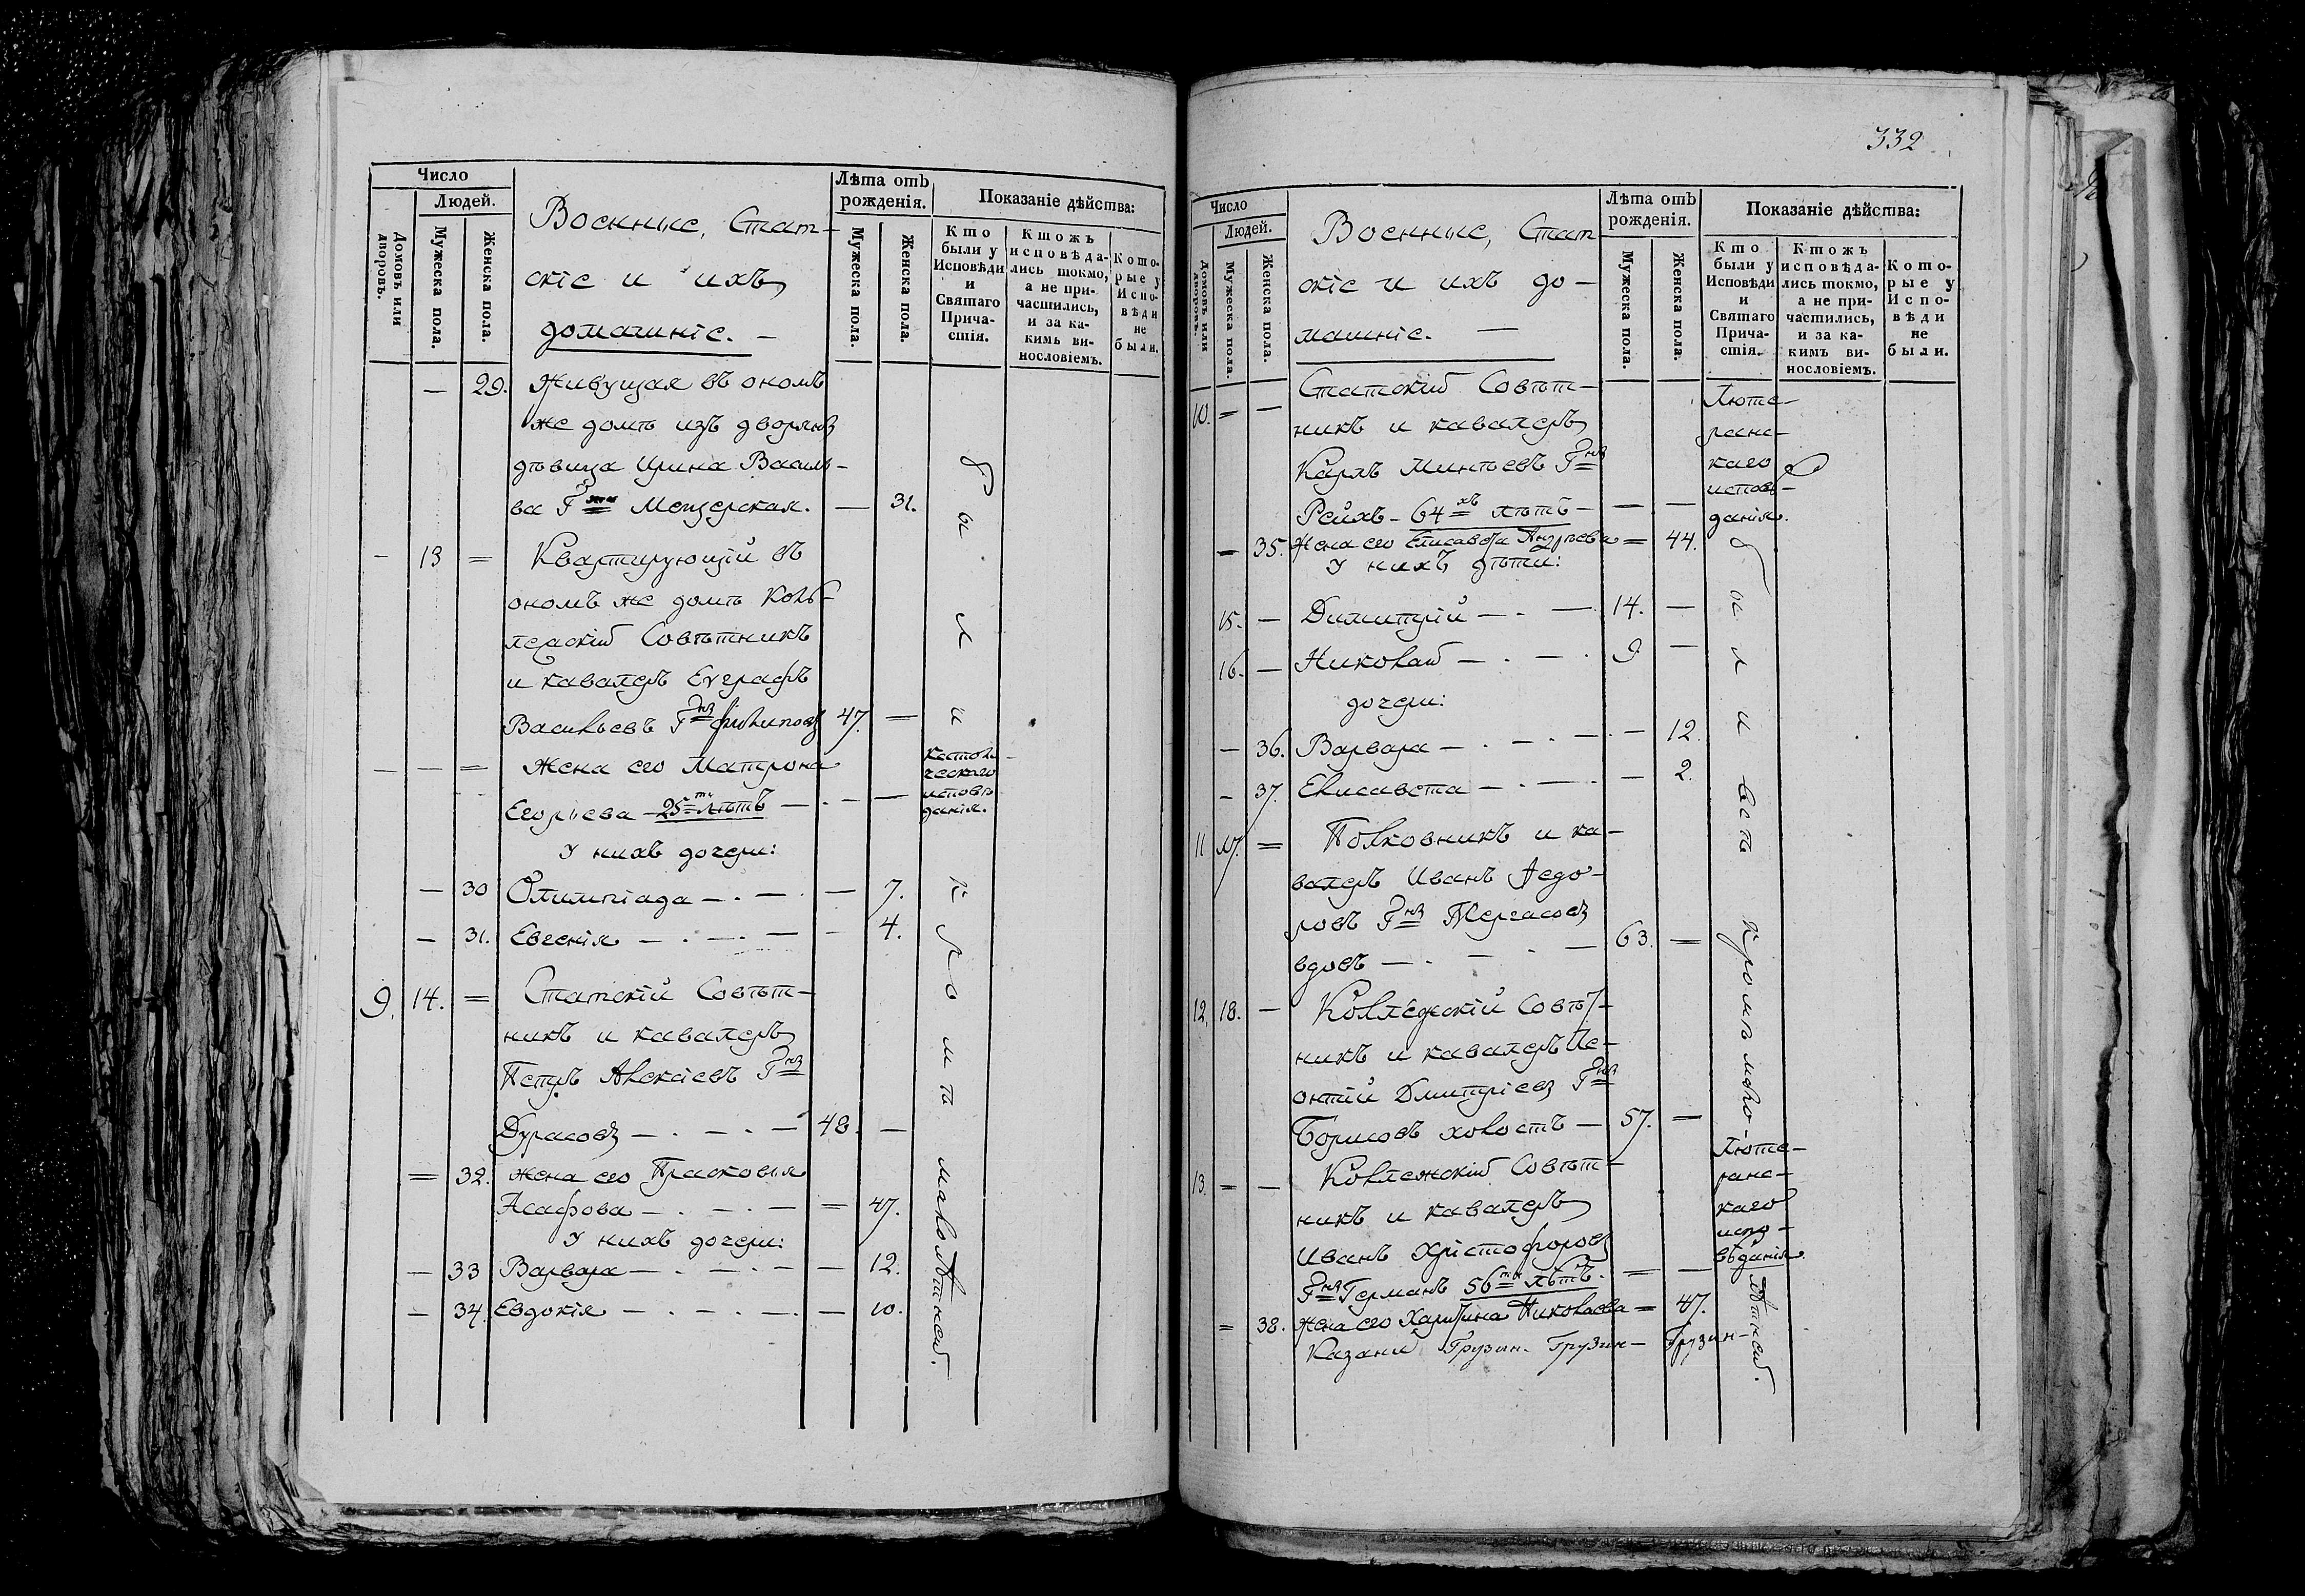 Число
Людей.
Домовъ или дворовъ.
Мужеска пола.
Женска пола.
Военные, Стат-
скіе и ихъ
домашніе. —
Лѣта отъ
рожденія.
Мужеска пола.
Женска пола.
Показаніе дѣйства:
Кто
были у
Исповѣди
и
Святаго
Прича-
стія.
Ктожъ
исповѣда-
лись токмо,
а не при-
частились,
и за ка-
кимъ ви-
нословіемъ.
Кото-
рые у
Испо-
вѣди
не
были.
— 29. Живущая въ ономъ
же домѣ изъ дворянъ
дѣвица Ирина Василь-
ва Гжа Мещерская. — 31.
— 13 = Квартирующій въ
ономъ же домѣ Кол-
лежскій Совѣтникъ
и кавалеръ Евграфъ
Васильевъ Гнъ Филиповъ 47. —
— — = Жена его Матрона
Егорьева 25ти лѣтъ — . — —
католи-
ческаго
исповѣ-
данія.
У нихъ дочери:
— 30 Олимпіада — . — . — 7.
— 31. Евгенія — . — . — — 4.
9. 14. = Статскій Совѣт-
никъ и кавалеръ
Петръ Алексіевъ Гнъ
Дурасовъ — . — . — 48. —
= 32. жена его Прасковья
Асафова — . — . — = 47.
У нихъ дочери:
— 33 Варвара — . — . — — 12.
— 34. Евдокія — . — . — . — 10.
были кромѣ малолѣтней.
332
Число
Людей.
Домовъ или дворовъ.
Мужеска пола.
Женска пола.
Военные, Стат
скіе и ихъ до-
машніе. —
Лѣта отъ
рожденія.
Мужеска пола.
Женска пола.
Показаніе дѣйства:
Кто
были у
Исповѣди
и
Святаго
Прича-
стія.
Ктожъ
исповѣда-
лись токмо,
а не при-
частились,
и за ка-
кимъ ви-
нословіемъ.
Кото-
рые у
Испо-
вѣди
не
были.
10. = — Статскій Совѣт-
никъ и кавалеръ
Карлъ Гнъ
Рейхъ — 64хъ лѣтъ — — —
Люте-
ранс-
каго
исповѣ-
данія.
= 35. Жена его Елисавета Андреева = 44.
У нихъ дѣти:
15. — Димитрій — . — 14. —
16. — Николай — . — . 9 —
дочери:
— 36. Варвара — . — . — . — 12.
— 37. Елисавета — . — . — 2.
11 17. = Полковникъ и ка-
валеръ Иванъ Ѳедо-
ровъ Гнъ Мергасовъ
вдовъ — . — . — 63. =
12. 18. — Коллежскій Совѣт-
никъ и кавалеръ Ле-
онтій Дмитріевъ Гнъ
Борисовъ холостъ — 57. —
13. = — Коллежскій Совѣт-
никъ и кавалеръ
Иванъ Христофоровъ
Гнъ Германъ 56ти лѣтъ. = —
Люте-
ранс-
каго
испо-
вѣданія.
= 38. Жена его Харитина Николаева = 47.
были всѣ кромѣ мало-
лѣтней.
Казани Грузин. Грузин- Грузин-